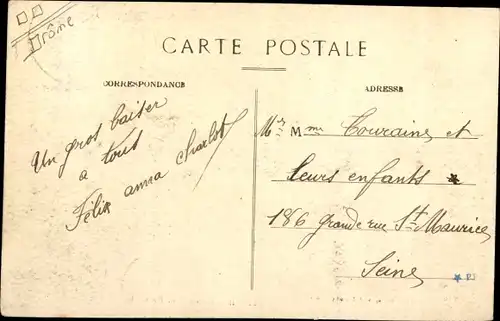 Drôme
CARTE POSTALE
CORRESPONDANCE
ADRESSE
Un gros baiser
a tous
Félix anna Charlot
Mr Mme Touraine et
leurs enfants
186 grande rue St Maurice
Seine